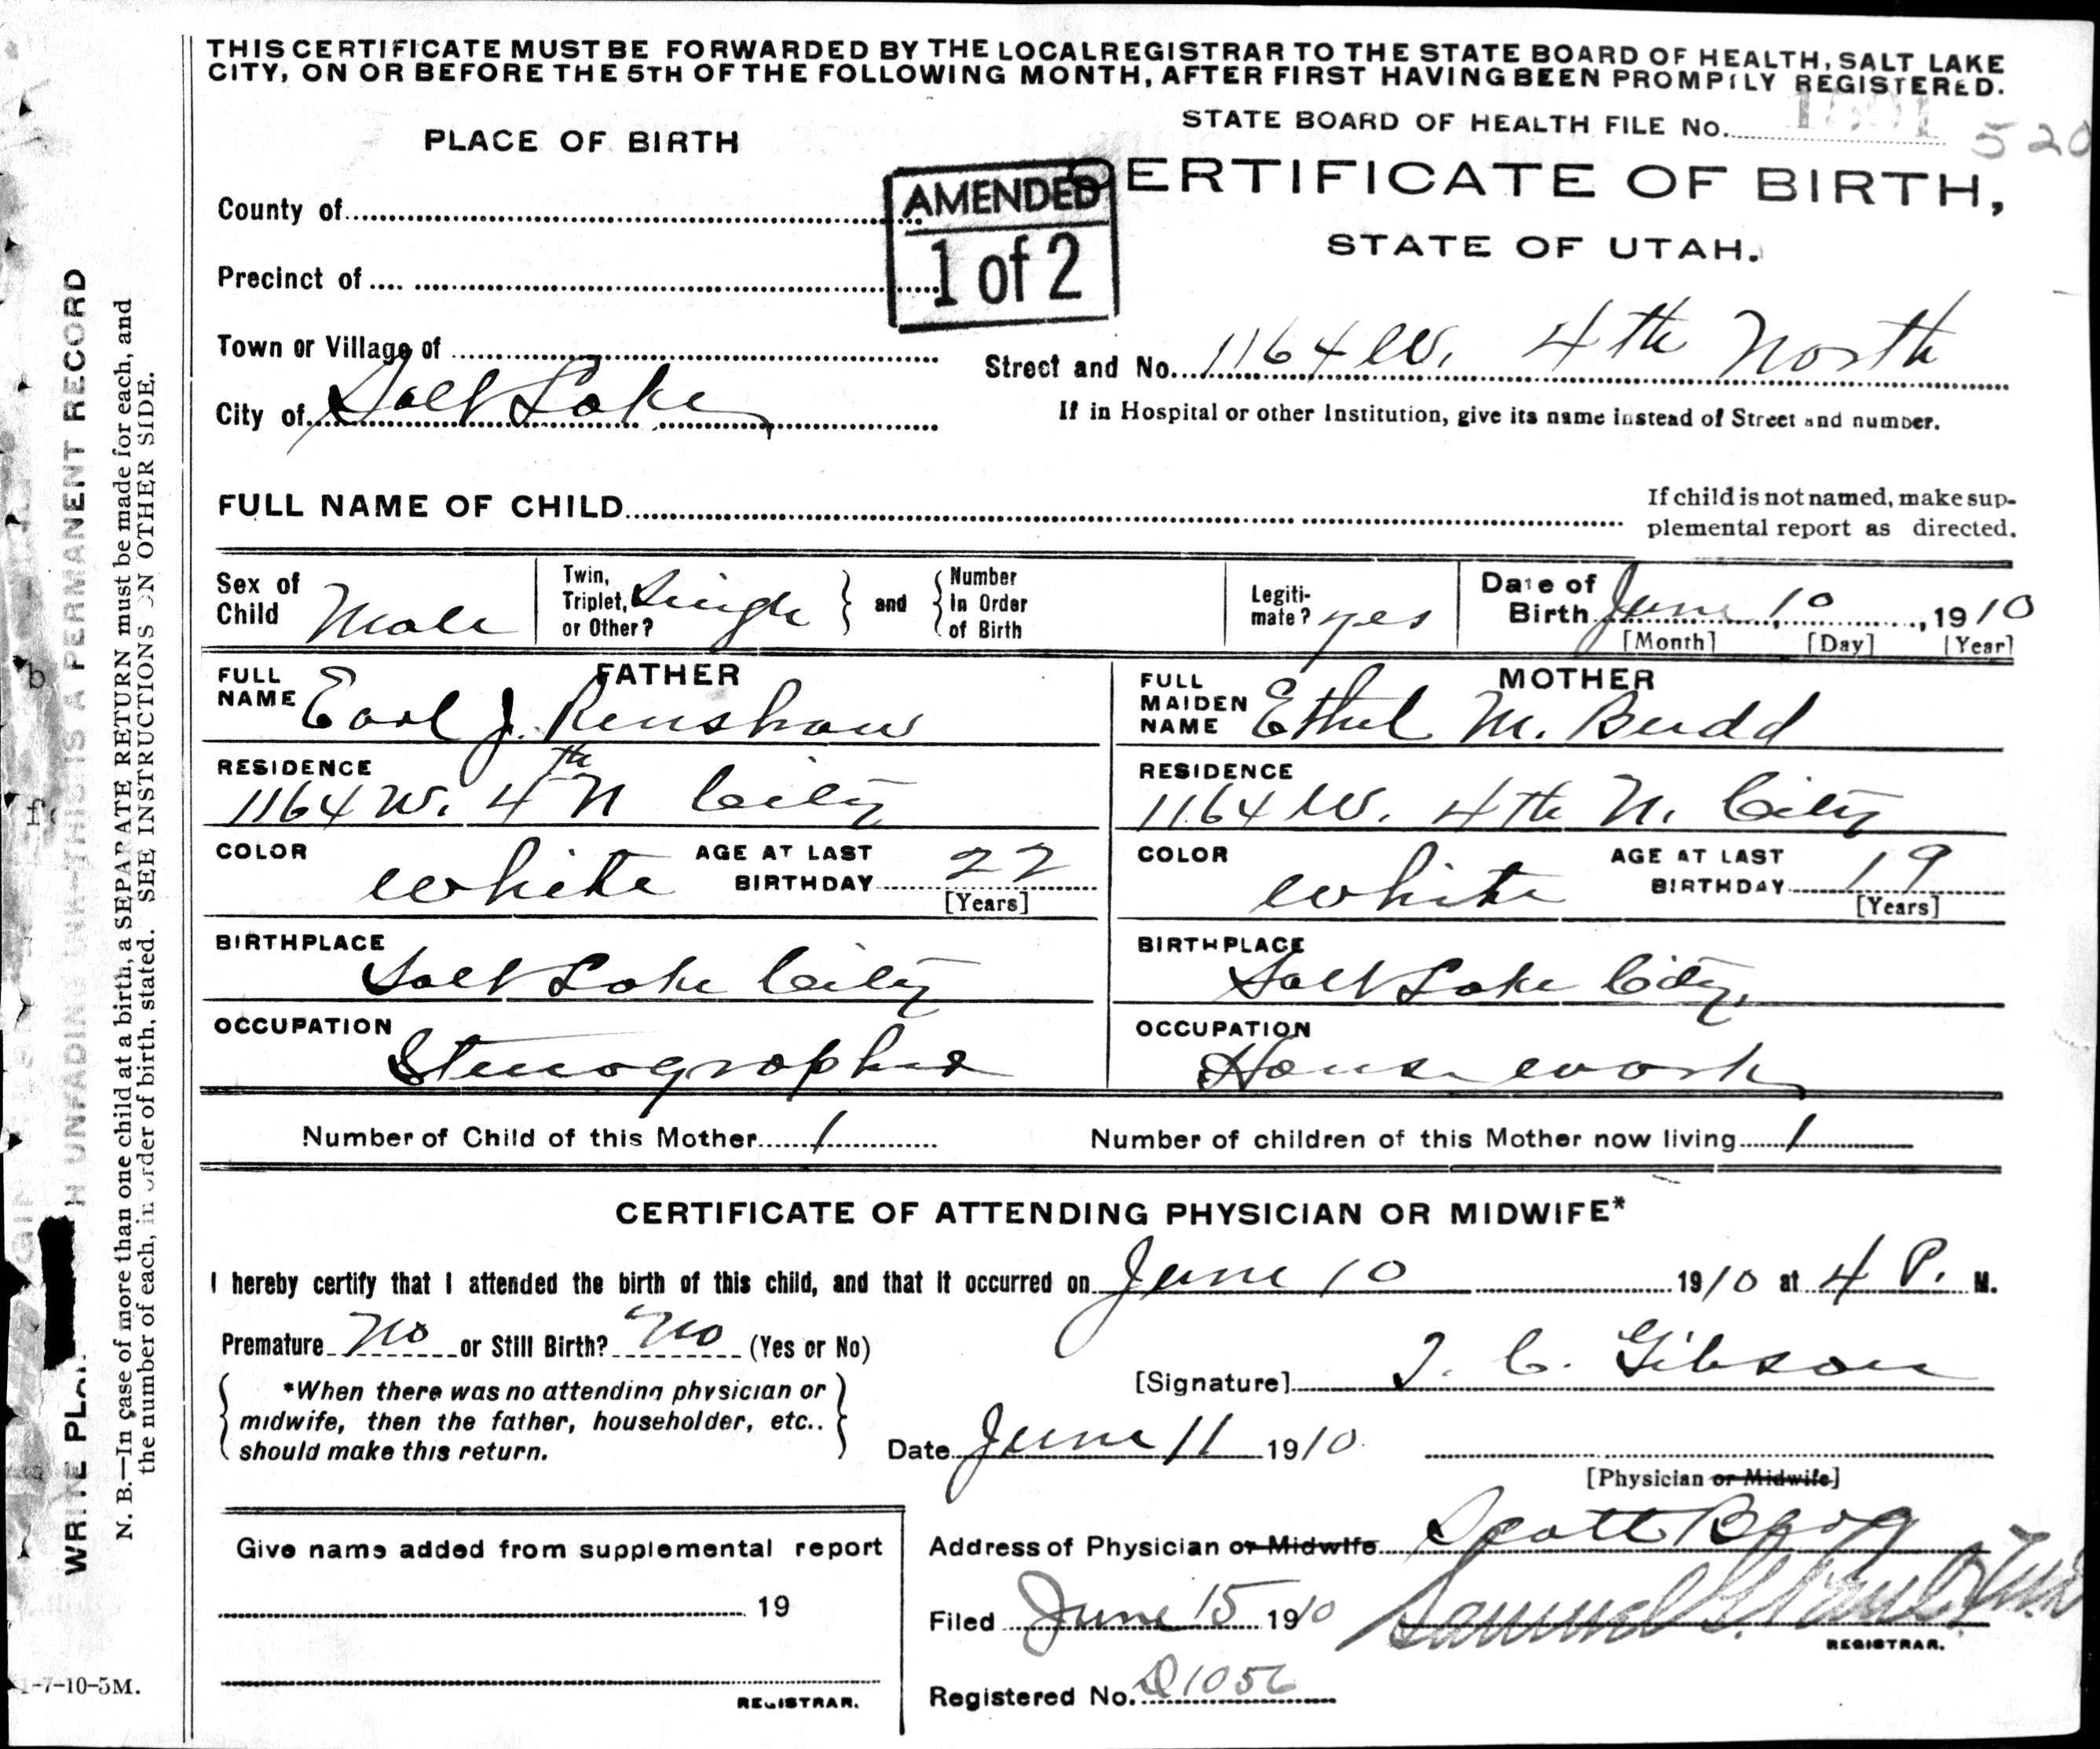 THIS CERTIFICATE MUST BE FORWARDED BY THE LOCAL REGISTRAR TO THE STATE BOARD OF HEALTH, SALT LAKE
CITY, ON OR BEFORE THE 5TH OF THE FOLLOWING MONTH, AFTER FIRST HAVING BEEN PROMPTLY REGISTERED.
STATE BOARD OF HEALTH FILE No. 520
PLACE OF BIRTH
CERTIFICATE OF BIRTH,
STATE OF UTAH.
AMENDED
1 of 2
County of
Precinct of
Town or Village of
Street and No. 1164 W. 4th North
City of Salt Lake
If in Hospital or other Institution, give its name instead of Street and number.
FULL NAME OF CHILD
If child is not named, make sup-
plemental report as directed.
Sex of Child Male
Twin, Triplet, or Other? Single and Number in Order of Birth
Legiti-mate? yes
Date of Birth June 10, 1910
[Month] [Day] [Year]
FATHER
FULL NAME Earl J. Renshaw
RESIDENCE 1164 W. 4th N City
COLOR white AGE AT LAST BIRTHDAY 22
[Years]
BIRTHPLACE Salt Lake City
OCCUPATION Stenographer
MOTHER
FULL MAIDEN NAME Ethel M. Budd
RESIDENCE 1164 W. 4th N. City
COLOR white AGE AT LAST BIRTHDAY 19
[Years]
BIRTHPLACE Salt Lake City,
OCCUPATION House work
Number of Child of this Mother 1
Number of children of this Mother now living 1
CERTIFICATE OF ATTENDING PHYSICIAN OR MIDWIFE*
I hereby certify that I attended the birth of this child, and that it occurred on June 10 1910 at 4 P. M.
Premature No or Still Birth? No (Yes or No)
*When there was no attending physician or
midwife, then the father, householder, etc..
should make this return.
[Signature] T. C. Gibson
Date June 11 1910
[Physician or Midwife]
Address of Physician or Midwife Scott Bldg
Filed June 15 1910 Samuel G. Paul
REGISTRAR.
Registered No. D1056
Give name added from supplemental report
19
REGISTRAR.
WRITE PLAINLY WITH UNFADING INK—THIS IS A PERMANENT RECORD
N. B.—In case of more than one child at a birth, a SEPARATE RETURN must be made for each, and
the number of each, in order of birth, stated. SEE INSTRUCTIONS ON OTHER SIDE.
1-7-10-5M.